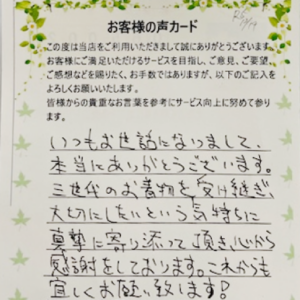 お客様の声カード
この度は当店をご利用いただきまして誠にありがとうございます。
お客様にご満足いただけるサービスを目指し、ご意見、ご要望、
ご感想などを賜りたく、お手数ではありますが、以下のご記入を
よろしくお願いします。
皆様からの貴重なお言葉を参考にサービス向上に努めて参り
ます。
いつもお世話になりまして、
本当にありがとうございます。
三世代のお着物を受け継ぎ、
大切にしたいという気持ちに
真摯に寄り添って頂き、心から
感謝をしております。これからも
宜しくお願い致します!